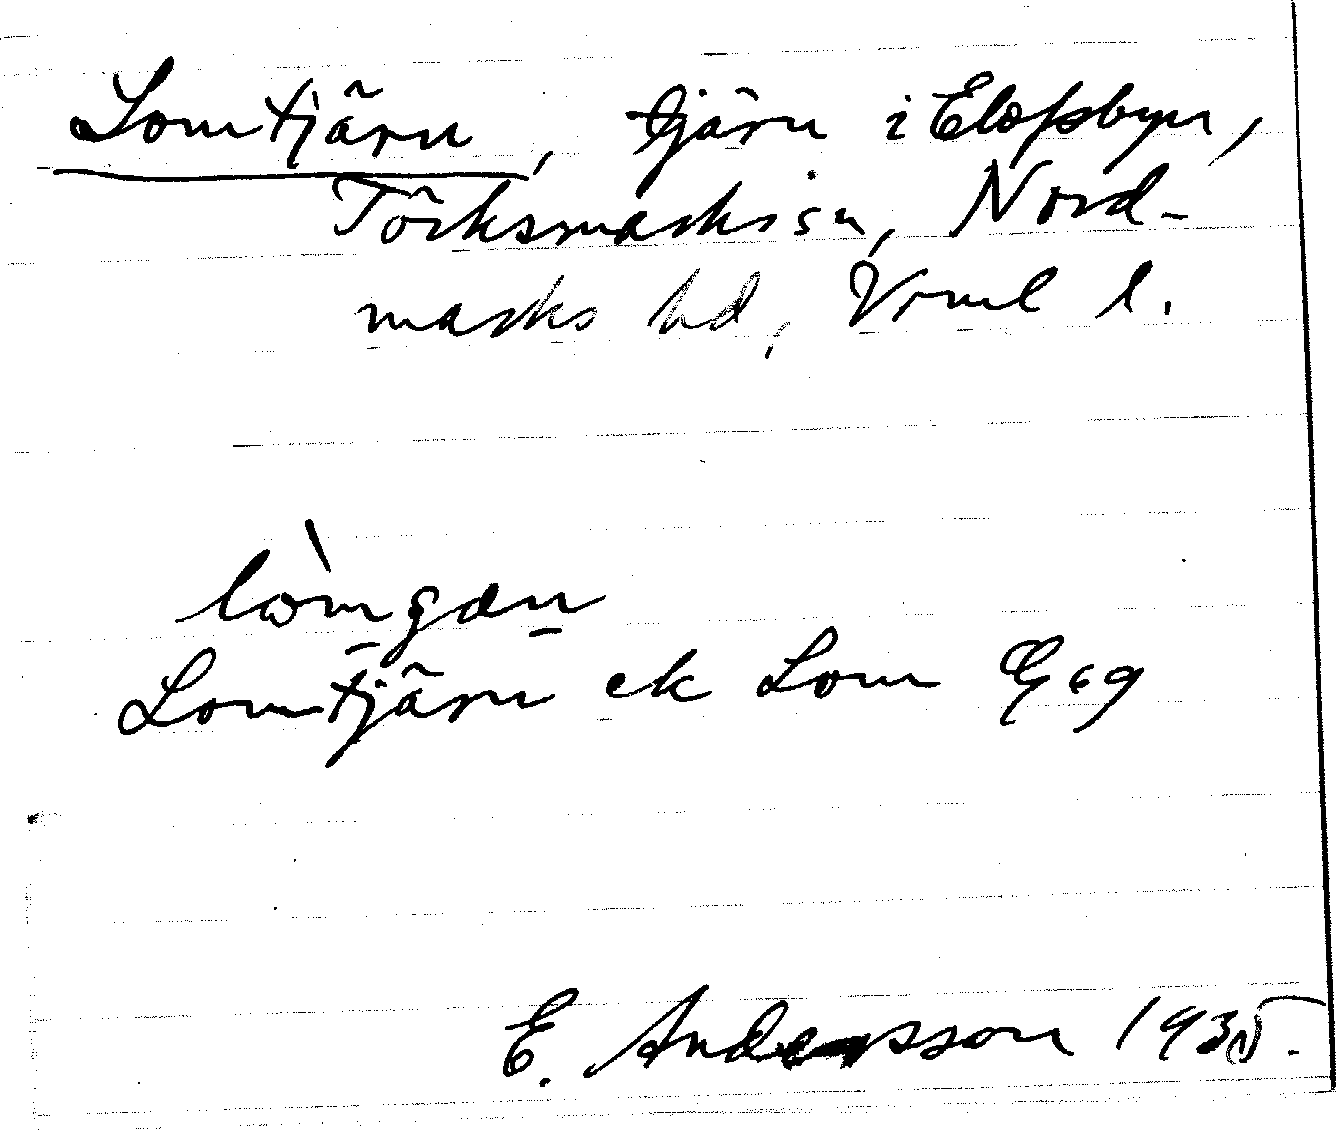 Lomtjärn, tjärn i Elofsbyn,
Törksmarks sn, Nord-
marks hd, Vrml l.
Lomtjärn ek Lom
E. Andersson 1935.